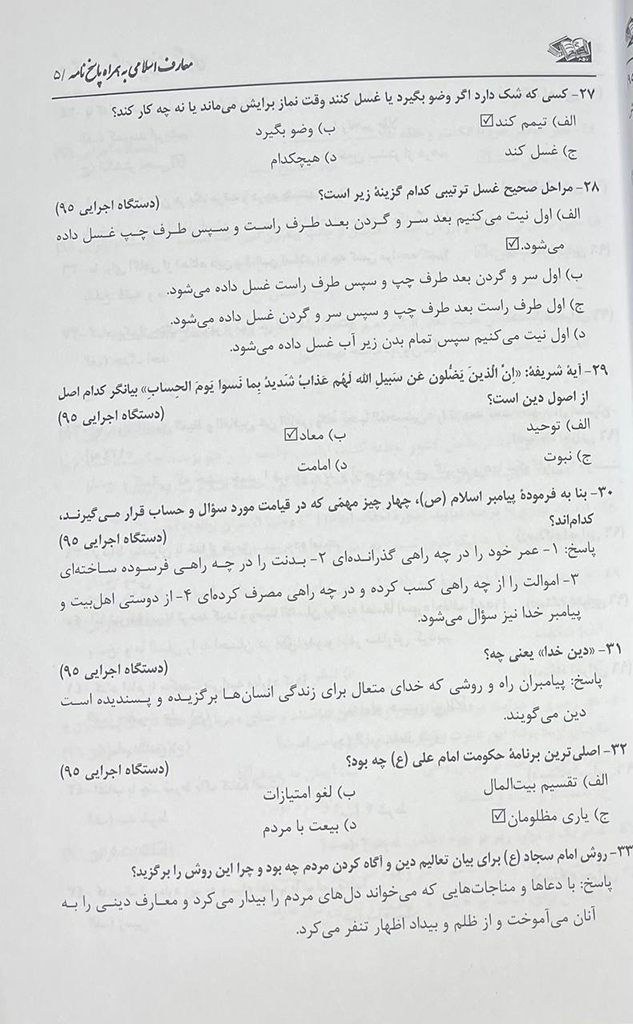 معارف اسلامی به همراه پاسخ نامه /۵
۲۷- کسی که شک دارد اگر وضو بگیرد یا غسل کنند وقت نماز برایش می‌ماند یا نه چه کار کند؟
الف) تیمم کند☑ ب) وضو بگیرد
ج) غسل کند د) هیچکدام
۲۸- مراحل صحیح غسل ترتیبی کدام گزینهٔ زیر است؟ (دستگاه اجرایی ۹۵)
الف) اول نیت می‌کنیم بعد سر و گردن بعد طرف راست و سپس طرف چپ غسل داده
می‌شود.☑
ب) اول سر و گردن بعد طرف چپ و سپس طرف راست غسل داده می‌شود.
ج) اول طرف راست بعد طرف چپ و سپس سر و گردن غسل داده می‌شود.
د) اول نیت می‌کنیم سپس تمام بدن زیر آب غسل داده می‌شود.
۲۹- آیهٔ شریفهٔ: «اِنّ الَّذینَ یَضُّلون عَن سَبیلِ الله لَهُم عَذابُ شَدیدُ بِما نَسوا یَومَ الحِساب» بیانگر کدام اصل
از اصول دین است؟ (دستگاه اجرایی ۹۵)
الف) توحید ب) معاد☑
ج) نبوت د) امامت
۳۰- بنا به فرمودهٔ پیامبر اسلام (ص)، چهار چیز مهمّی که در قیامت مورد سؤال و حساب قرار می‌گیرند،
کدام‌اند؟ (دستگاه اجرایی ۹۵)
پاسخ: ۱- عمر خود را در چه راهی گذرانده‌ای ۲- بدنت را در چه راهی فرسوده ساخته‌ای
۳- اموالت را از چه راهی کسب کرده و در چه راهی مصرف کرده‌ای ۴- از دوستی اهل‌بیت و
پیامبر خدا نیز سؤال می‌شود.
۳۱- «دین خدا» یعنی چه؟ (دستگاه اجرایی ۹۵)
پاسخ: پیامبران راه و روشی که خدای متعال برای زندگی انسان‌ها برگزیده و پسندیده است
دین می‌گویند.
۳۲- اصلی‌ترین برنامهٔ حکومت امام علی (ع) چه بود؟ (دستگاه اجرایی ۹۵)
الف) تقسیم بیت‌المال ب) لغو امتیازات
ج) یاری مظلومان☑ د) بیعت با مردم
۳۳- روش امام سجاد (ع) برای بیان تعالیم دین و آگاه کردن مردم چه بود و چرا این روش را برگزید؟
پاسخ: با دعاها و مناجات‌هایی که می‌خواند دل‌های مردم را بیدار می‌کرد و معارف دینی را به
آنان می‌آموخت و از ظلم و بیداد اظهار تنفر می‌کرد.